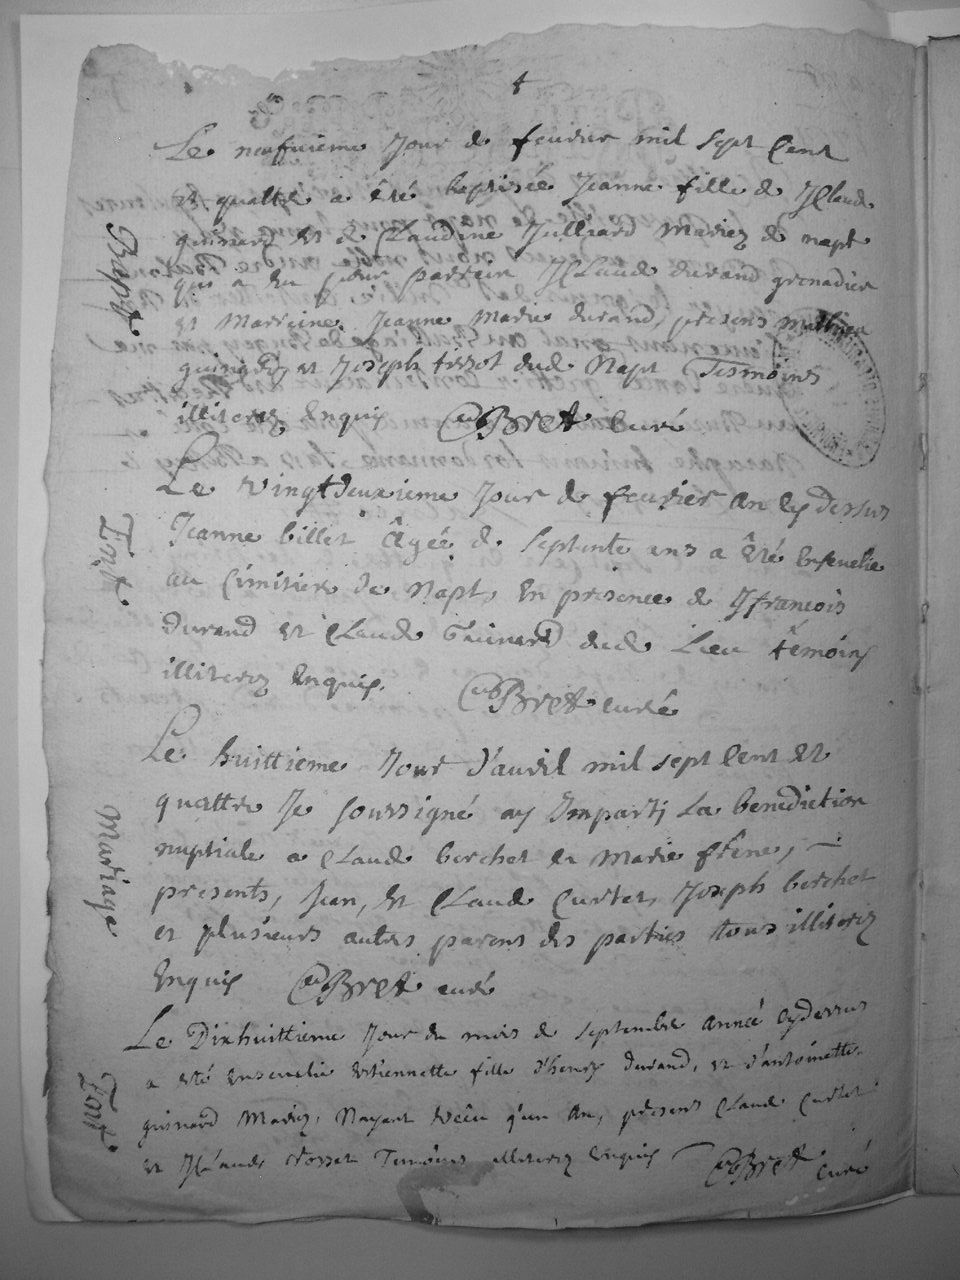 Bapt.
Le neufuieme Jour de feurier mil sept Cent
et quattre a été baptisée Jeanne fille de Claude
guinard et de Claudine Julliard Mariez de napt
qui a eu pour parrein Claude durand grenadier
et Marreine Jeanne Marie durand, presens
guinard, et Joseph dud. Napt Tesmoins
illiterez Enquis CuBret Curé
Le vingtdeuxieme Jour de feurier an cy dessus
Jeanne billet âgée de septente ans a été Enseuelie
au Cimitiere de Napt, En presence de françois
durand et Claude Guinard dud. Lieu témoins
illiterez Enquis. CuBret curé
Mariage
Le huittieme Jour d'auril mil sept Cent Et
quattre Je soussigné ay Imparti La benediction
nuptiale a Claude berchet et Marie frene,
presents, Jean, Et Claude Curtet, Joseph berchet
et plusieurs autres parens des parties tous illiterez
Enquis CuBret curé
Ent.
Le Dixhuittieme Jour du mois de septembre année cydessus
a été Enseuelie Estiennette fille d'henry durand, et d'antoinette
guinard Mariez, Nayant vécu qu'un An, présens Claude Curtet
et Claude Temoins illiterez Enquis CuBret curé